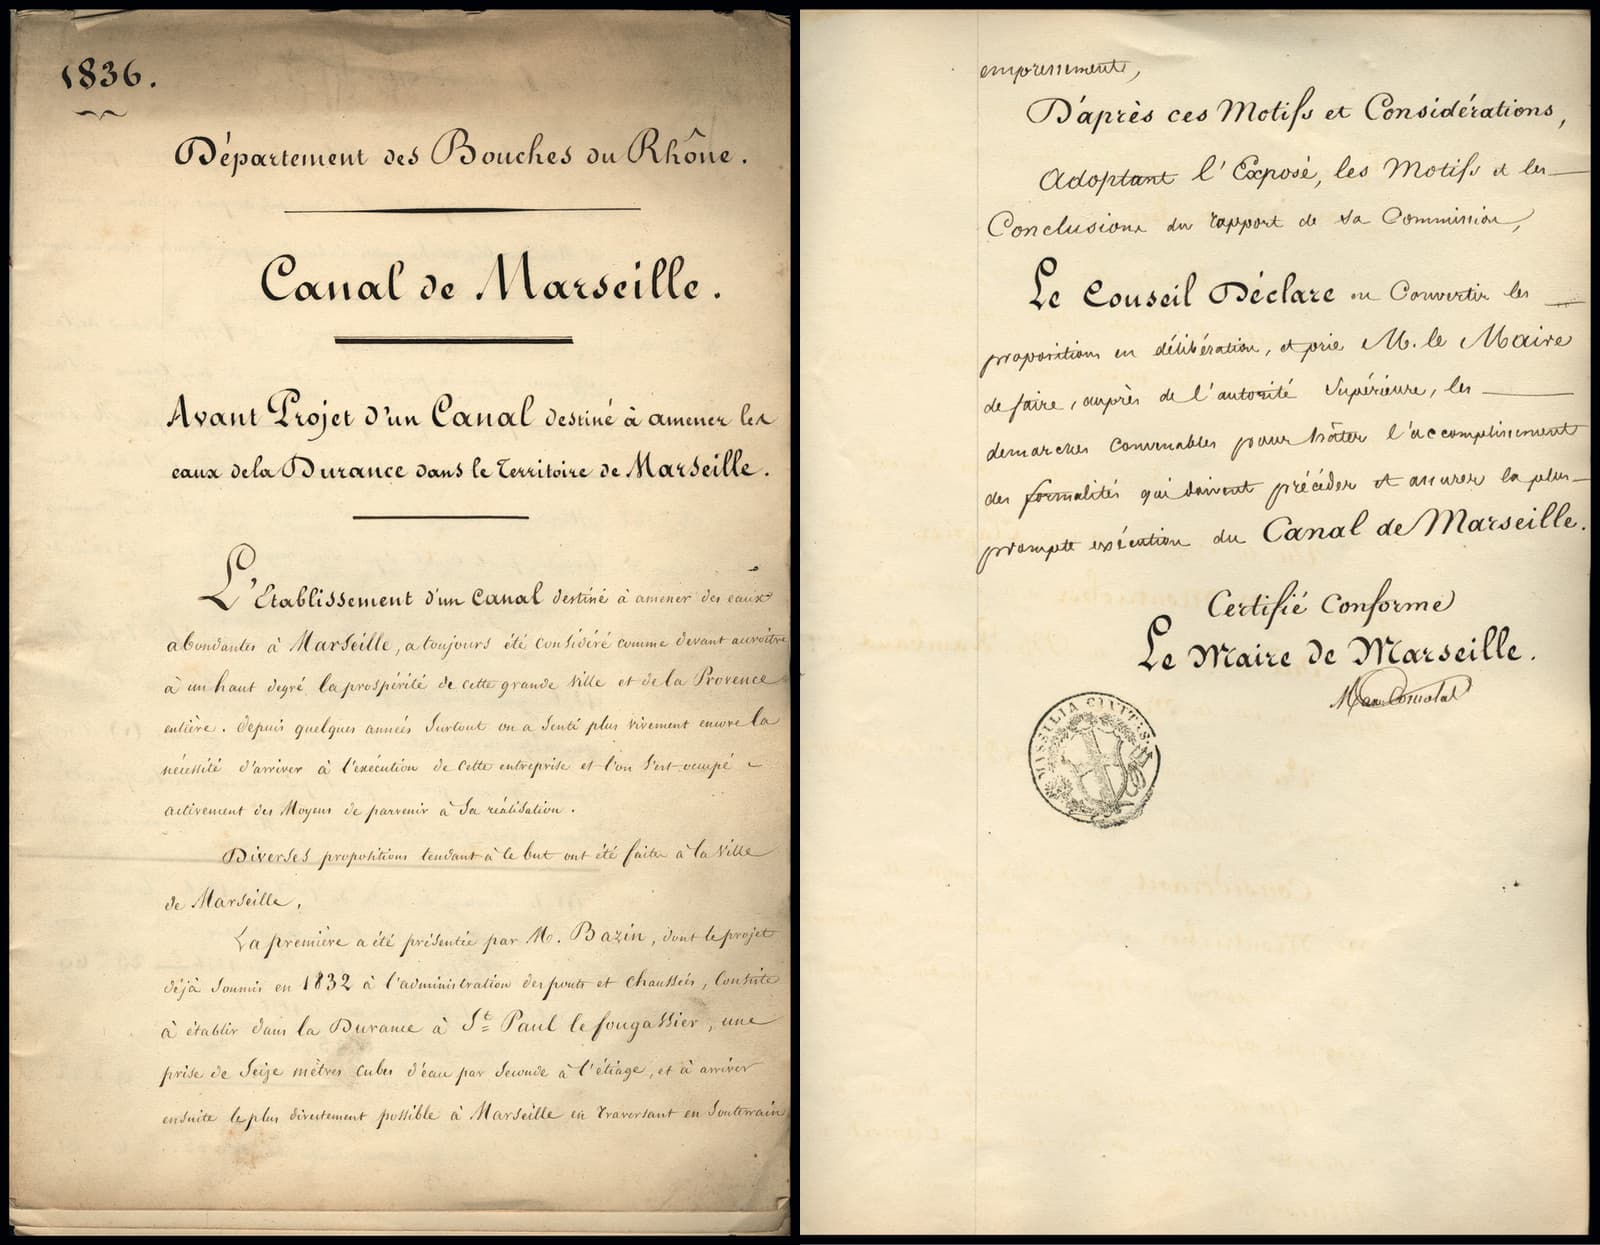 1836.
Département des Bouches du Rhône.
Canal de Marseille.
Avant Projet d'un Canal destiné à amener les
eaux de la Durance dans le Territoire de Marseille.
L'Etablissement d'un Canal destiné à amener des eaux
abondantes à Marseille, a toujours été considéré comme devant accroître
à un haut degré la prospérité de cette grande Ville et de la Provence
entière. Depuis quelques années surtout on a senti plus vivement encore la
nécessité d'arriver à l'exécution de cette entreprise et l'on s'est occupé
activement des Moyens de parvenir à sa réalisation.
Diverses propositions tendant à ce but ont été faites à la Ville
de Marseille.
La première a été présentée par M. Bazin, dont le projet
déjà soumis en 1832 à l'administration des ponts et chaussées, consiste
à établir dans la Durance à St Paul le fougassier, une
prise de Seize mètres cubes d'eau par Seconde à l'étiage, et à arriver
ensuite le plus directement possible à Marseille en traversant en souterrain
empressement,
D'après ces Motifs et Considérations,
Adoptant l'Exposé, les Motifs et les
Conclusions du rapport de sa Commission,
Le Conseil Déclare en Convertir les
propositions en délibération, et prie M. le Maire
de faire, auprès de l'autorité Supérieure, les
demarches convenables pour hâter l'accomplissement
des formalités qui doivent précéder et assurer la plus
prompte exécution du Canal de Marseille.
Certifié Conforme
Le Maire de Marseille.
Max Consolat
MASSILIA CIVITAS